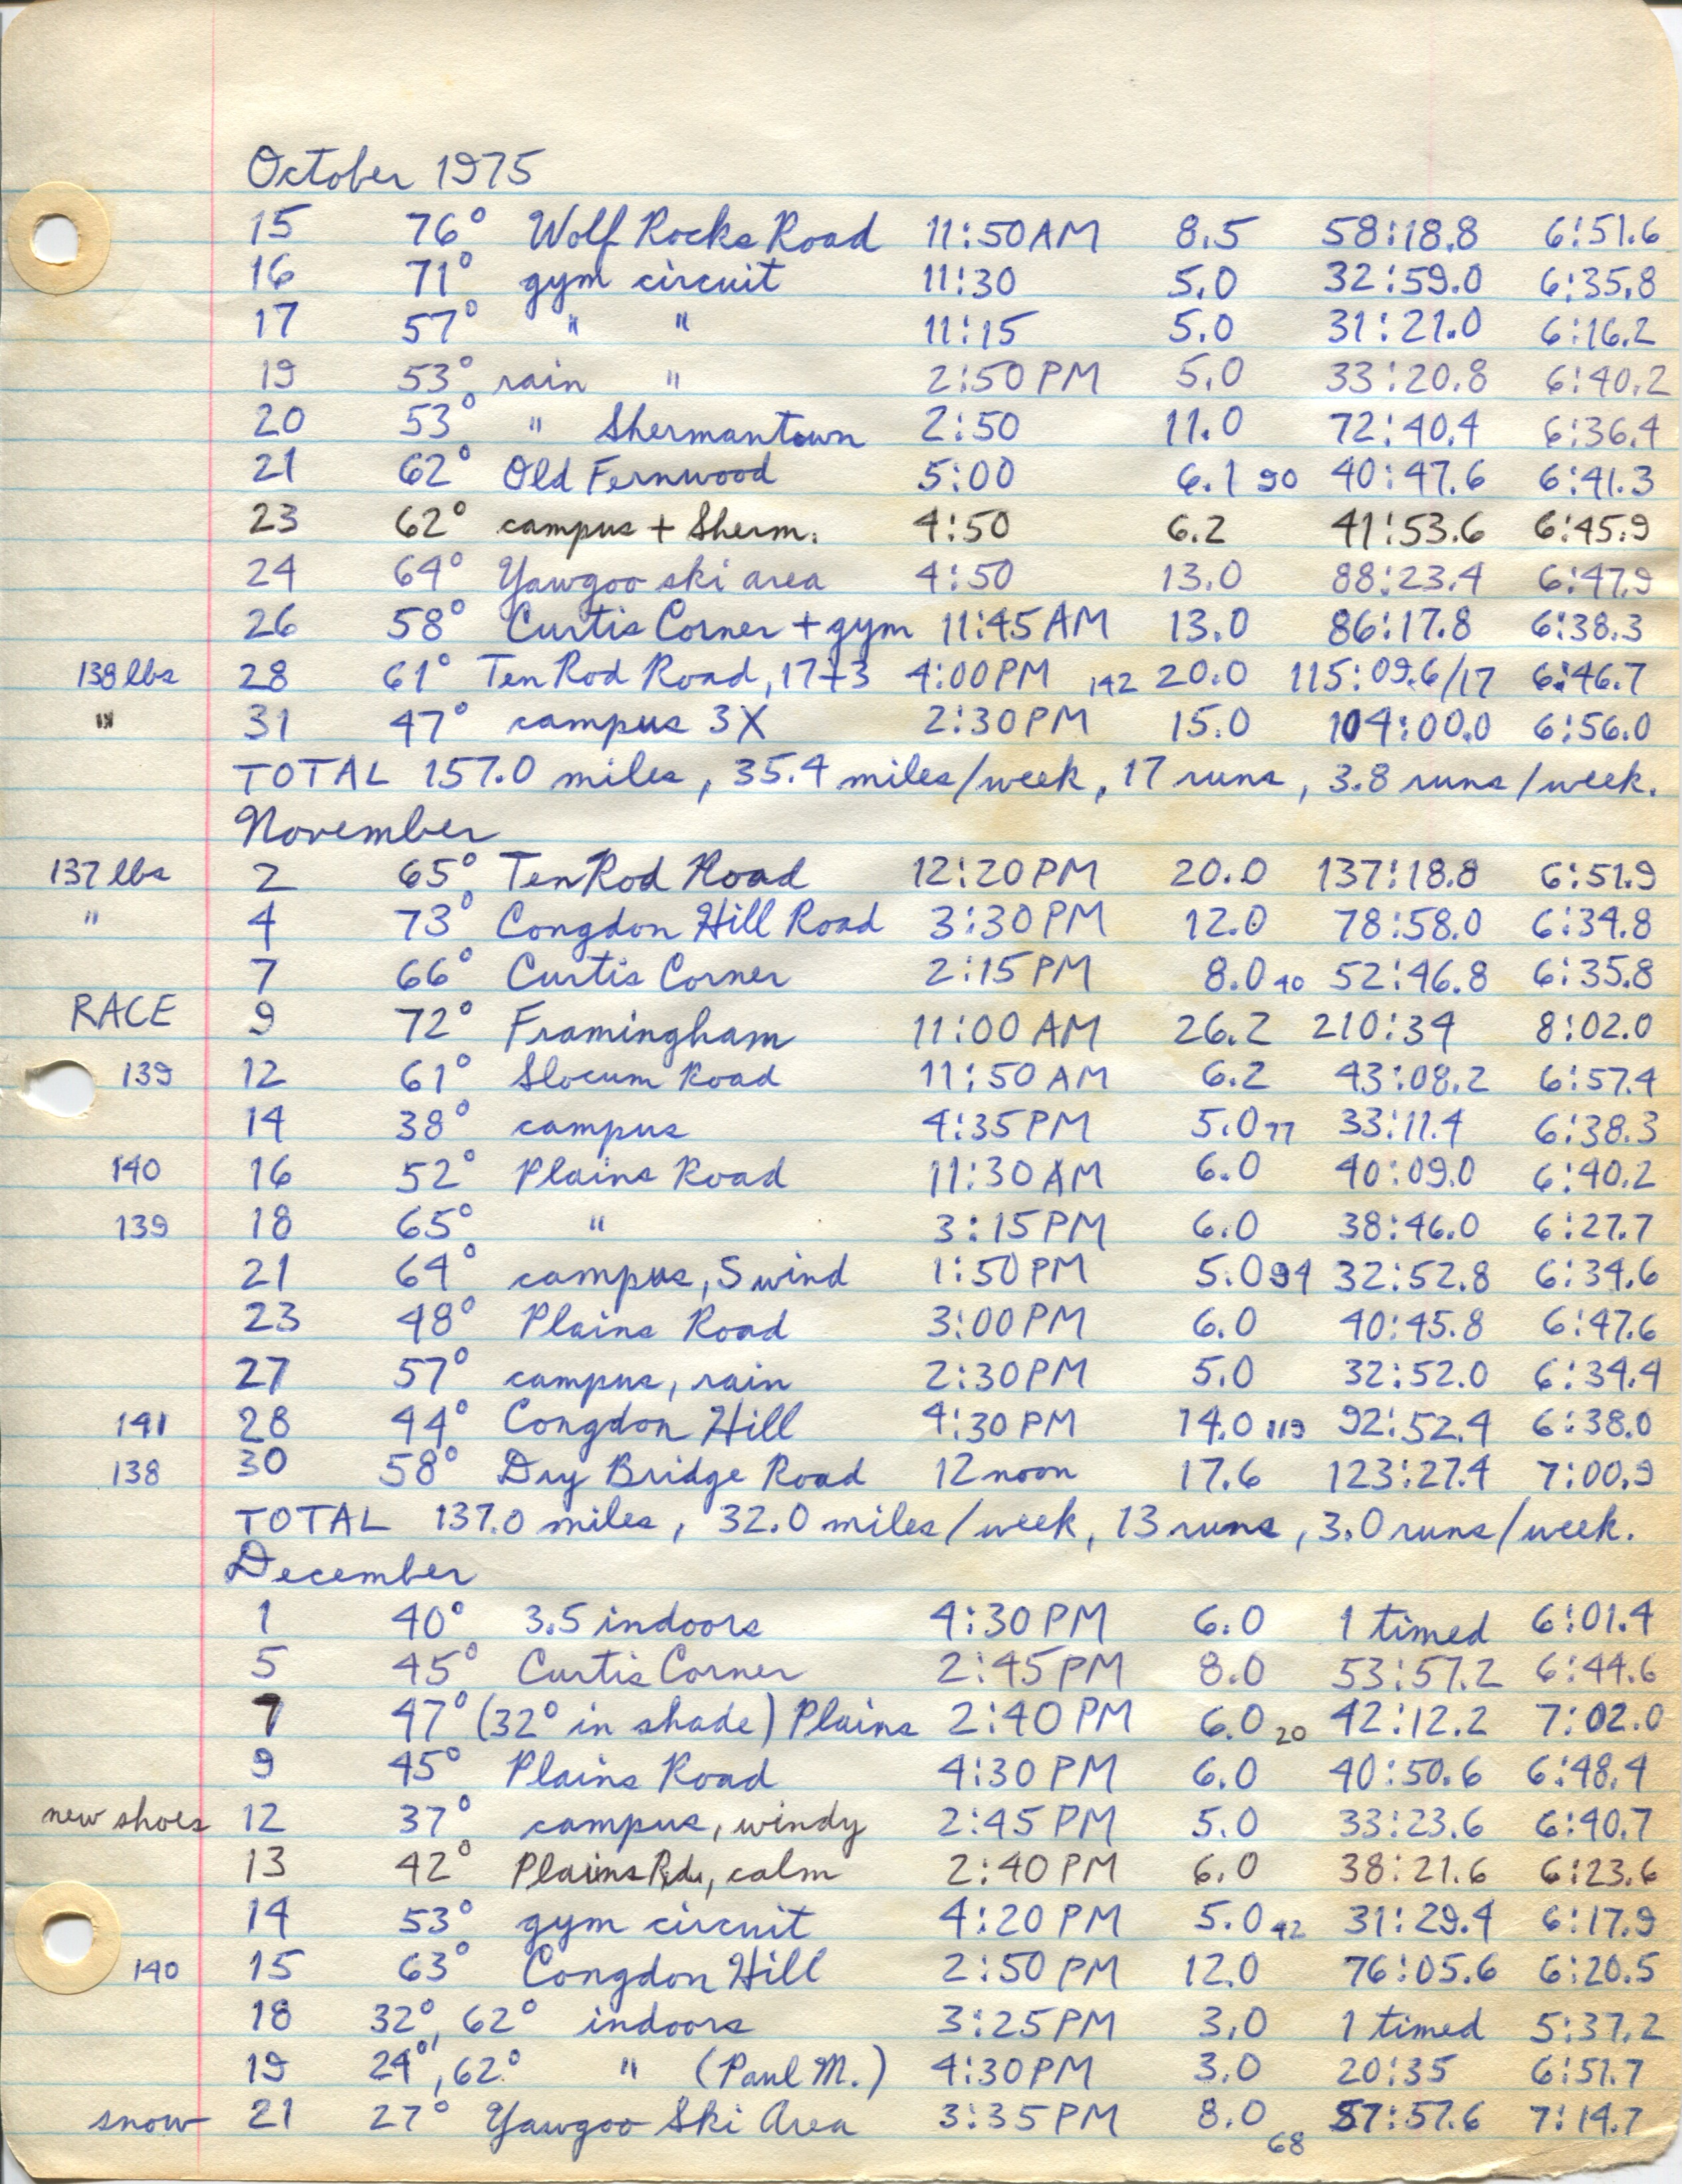 October 1975
15 76° Wolf Rocks Road 11:50 AM 8.5 58:18.8 6:51.6
16 71° gym circuit 11:30 5.0 32:59.0 6:35.8
17 57° " " 11:15 5.0 31:21.0 6:16.2
19 53° rain " 2:50 PM 5.0 33:20.8 6:40.2
20 53° " Shermantown 2:50 11.0 72:40.4 6:36.4
21 62° Old Fernwood 5:00 6.1 90 40:47.6 6:41.3
23 62° campus + Sherm. 4:50 6.2 41:53.6 6:45.9
24 64° Yawgoo ski area 4:50 13.0 88:23.4 6:47.9
26 58° Curtis Corner + gym 11:45 AM 13.0 86:17.8 6:38.3
138 lbs 28 61° Ten Rod Road, 17+3 4:00 PM 142 20.0 115:09.6/17 6:46.7
" 31 47° campus 3X 2:30 PM 15.0 104:00.0 6:56.0
TOTAL 157.0 miles, 35.4 miles/week, 17 runs, 3.8 runs/week.
November
137 lbs 2 65° Ten Rod Road 12:20 PM 20.0 137:18.8 6:51.9
" 4 73° Congdon Hill Road 3:30 PM 12.0 78:58.0 6:34.8
7 66° Curtis Corner 2:15 PM 8.0 40 52:46.8 6:35.8
RACE 9 72° Framingham 11:00 AM 26.2 210:34 8:02.0
139 12 61° Slocum Road 11:50 AM 6.2 43:08.2 6:57.4
14 38° campus 4:35 PM 5.0 77 33:11.4 6:38.3
140 16 52° Plains Road 11:30 AM 6.0 40:09.0 6:40.2
139 18 65° " 3:15 PM 6.0 38:46.0 6:27.7
21 64° campus, S wind 1:50 PM 5.0 94 32:52.8 6:34.6
23 48° Plains Road 3:00 PM 6.0 40:45.8 6:47.6
27 57° campus, rain 2:30 PM 5.0 32:52.0 6:34.4
141 28 44° Congdon Hill 4:30 PM 14.0 119 92:52.4 6:38.0
138 30 58° Dry Bridge Road 12 noon 17.6 123:27.4 7:00.9
TOTAL 137.0 miles, 32.0 miles/week, 13 runs, 3.0 runs/week.
December
1 40° 3.5 indoors 4:30 PM 6.0 1 timed 6:01.4
5 45° Curtis Corner 2:45 PM 8.0 53:57.2 6:44.6
7 47° (32° in shade) Plains 2:40 PM 6.0 20 42:12.2 7:02.0
9 45° Plains Road 4:30 PM 6.0 40:50.6 6:48.4
new shoes 12 37° campus, windy 2:45 PM 5.0 33:23.6 6:40.7
13 42° Plains Rd., calm 2:40 PM 6.0 38:21.6 6:23.6
14 53° gym circuit 4:20 PM 5.0 42 31:29.4 6:17.9
140 15 63° Congdon Hill 2:50 PM 12.0 76:05.6 6:20.5
18 32°, 62° indoors 3:25 PM 3.0 1 timed 5:37.2
19 24°, 62° " (Paul M.) 4:30 PM 3.0 20:35 6:51.7
snow 21 27° Yawgoo Ski Area 3:35 PM 8.0 68 57:57.6 7:14.7